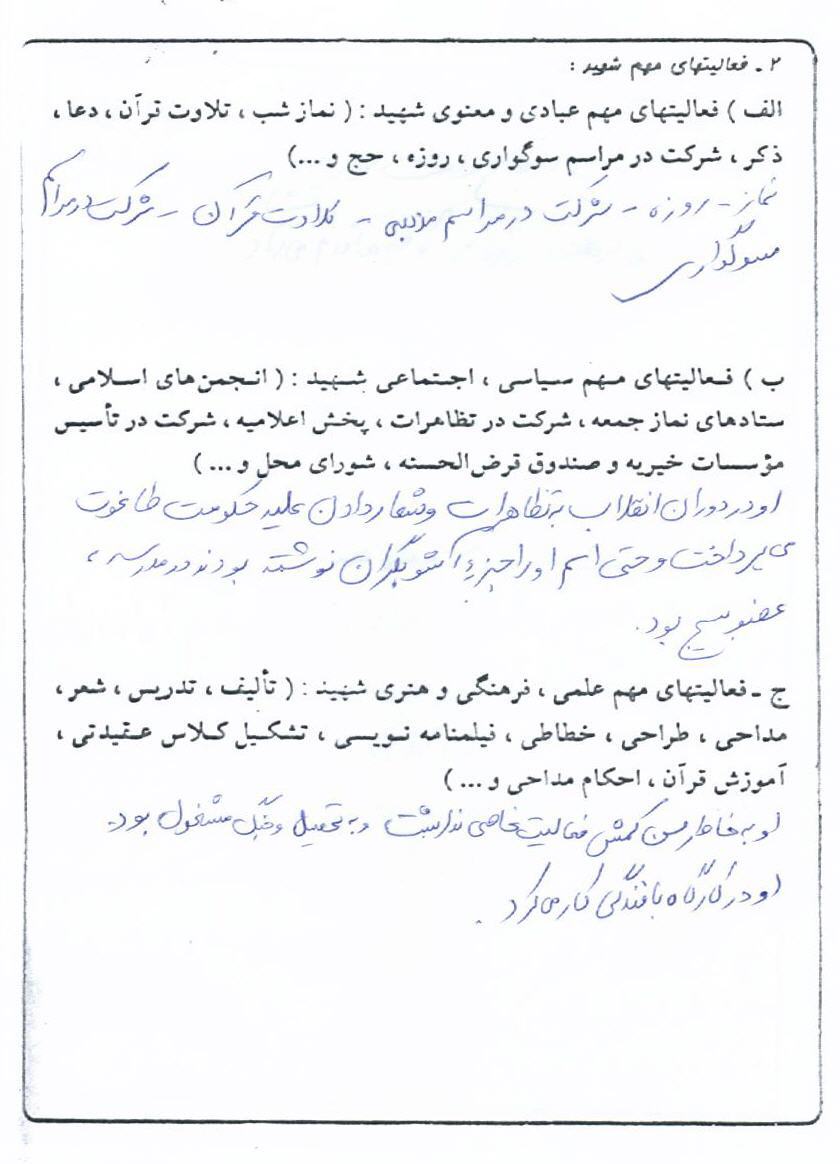 ۲ ـ فعالیتهای مهم شهید :
الف ) فعالیتهای مهم عبادی و معنوی شهید : ( نماز شب ، تلاوت قرآن ، دعا ،
ذکر ، شرکت در مراسم سوگواری ، روزه ، حج و ...)
نماز - روزه - شرکت در مراسم مذهبی - تلاوت قرآن - شرکت در مراسم
سوگواری
ب ) فعالیتهای مهم سیاسی ، اجتماعی شهید : ( انجمن‌های اسلامی ،
ستادهای نماز جمعه ، شرکت در تظاهرات ، پخش اعلامیه ، شرکت در تأسیس
مؤسسات خیریه و صندوق قرض‌الحسنه ، شورای محل و ... )
او در دوران انقلاب به تظاهرات و شعار دادن علیه حکومت طاغوت
می پرداخت و حتی اسم او را جزء آشوبگران نوشته بودند در مدرسه ،
عضو بسیج بود .
ج ـ فعالیتهای مهم علمی ، فرهنگی و هنری شهید : ( تألیف ، تدریس ، شعر ،
مداحی ، طراحی ، خطاطی ، فیلمنامه نویسی ، تشکیل کلاس عقیدتی ،
آموزش قرآن ، احکام مداحی و ... )
او به خاطر سن کمش فعالیت خاصی نداشت و به تحصیل مشغول بود.
او در کارگاه بافندگی کار می کرد .